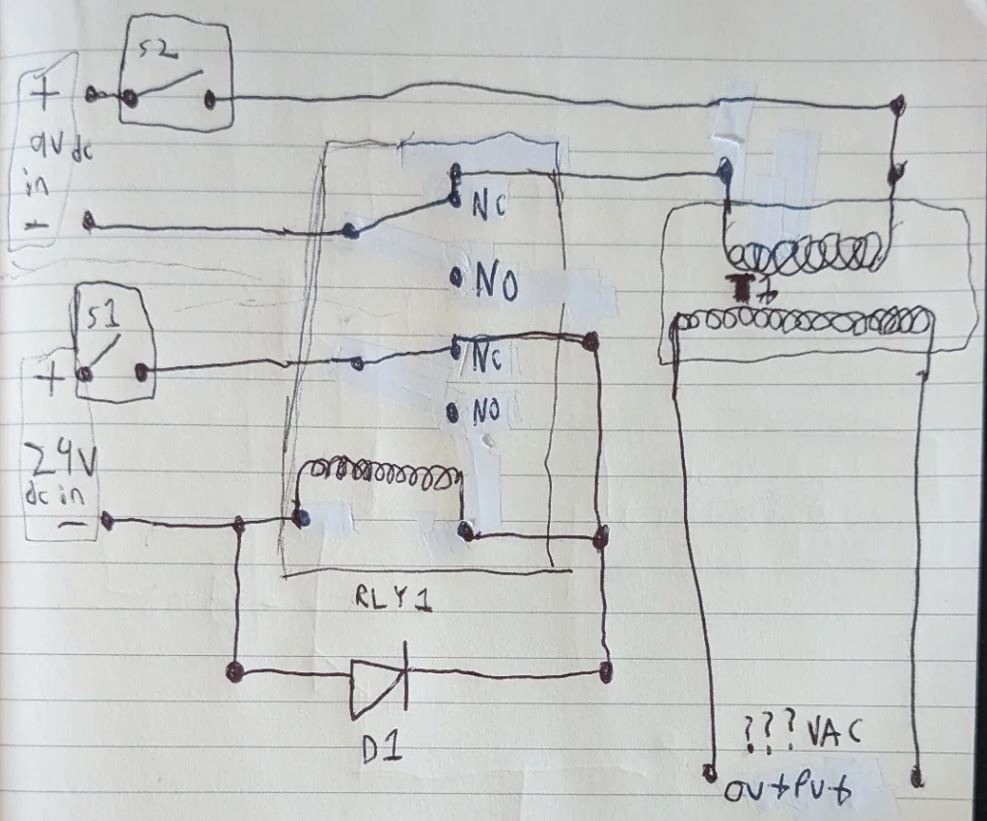 S2
+
9V dc
in
-
NC
NO
T1
S1
+
NC
NO
24V
dc in
-
RLY1
D1
??? VAC
output